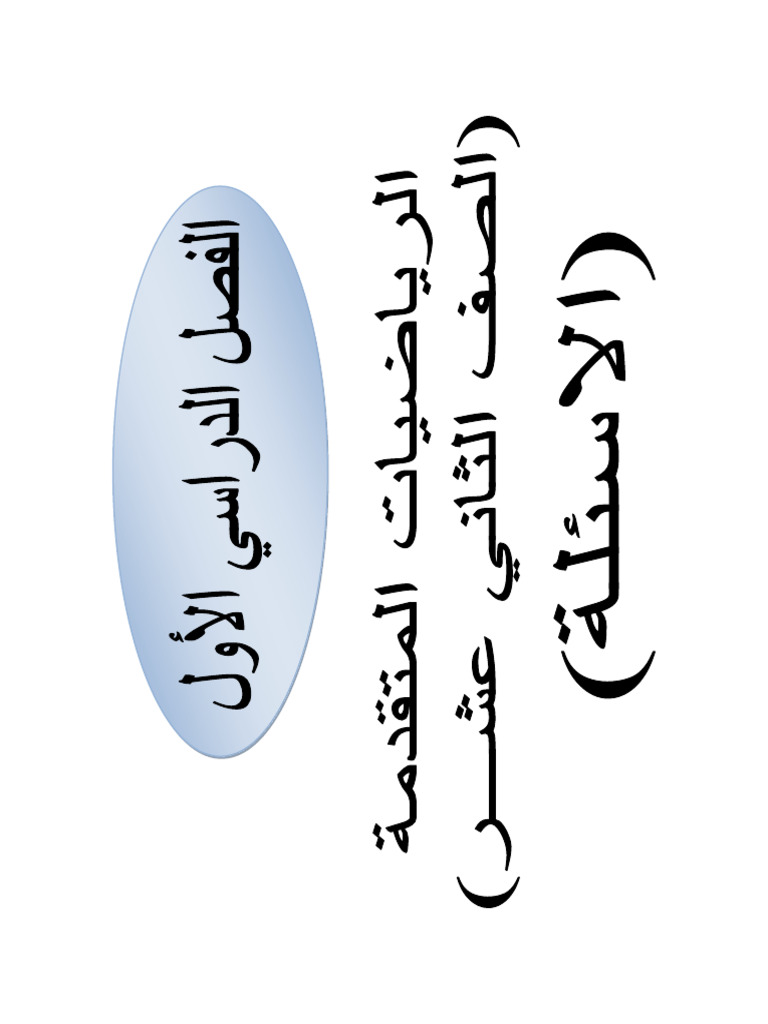 الفصل الدراسي الأول
الرياضيات المتقدمة
(الصف الثاني عشـــر)
(الاسئلة)